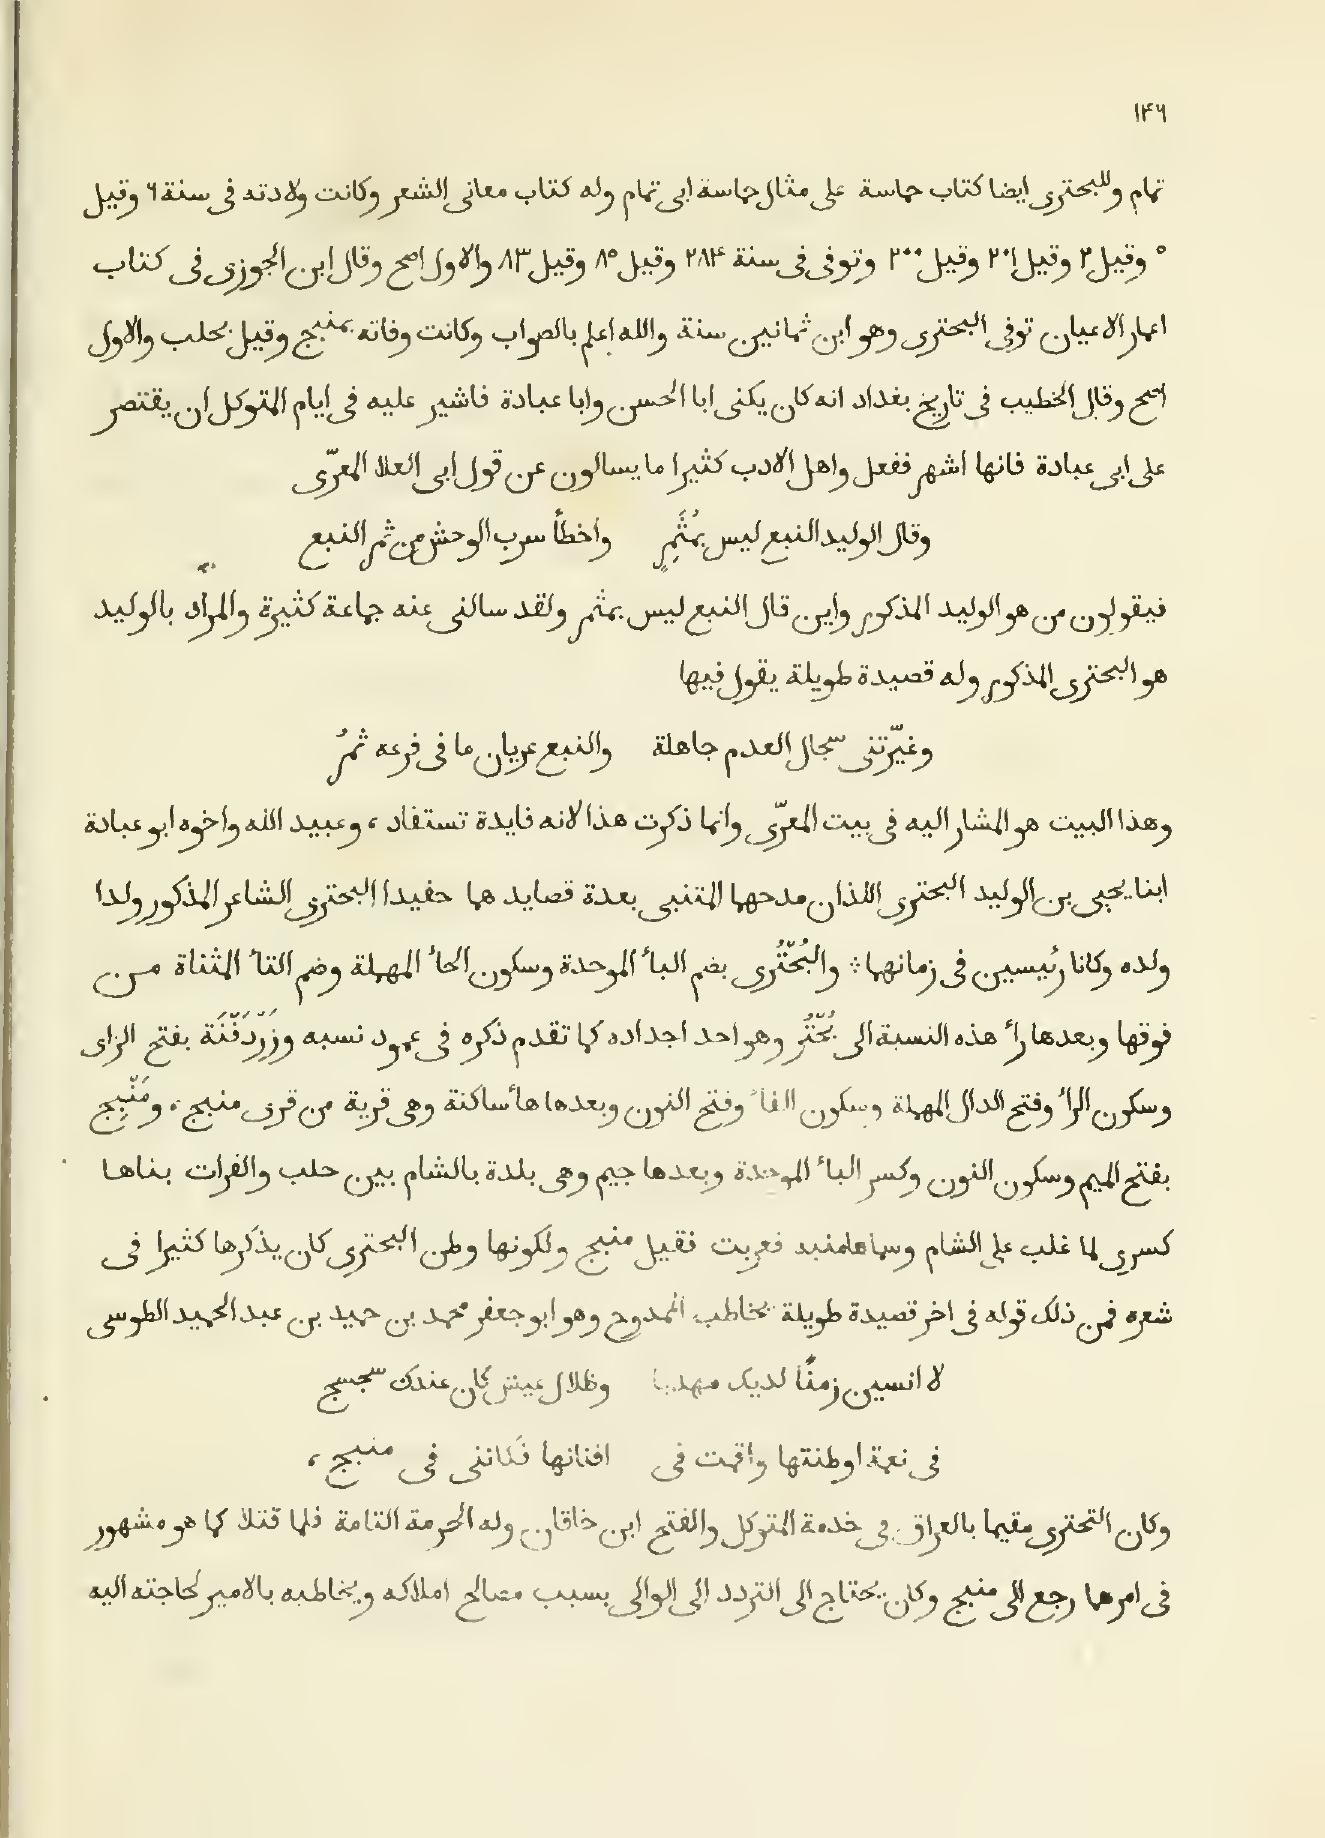 ١٤٦
تمام وللبحترى ايضا كتاب حماسة على مثال حماسة ابى تمام وله كتاب معانى الشعر وكانت ولادته فى سنة ٦ وقيل
٥ وقيل ٢ وقيل ٢٠١ وقيل ٢٠٠ وتوفى فى سنة ٢٨٤ وقيل ٨٥ وقيل ٨٣ والاول اصح وقال ابن الجوزى فى كتاب
اعمار الاعيان توفى البحترى وهو ابن ثمانين سنة والله اعلم بالصواب وكانت وفاته بمنبج وقيل بحلب والاول
اصح وقال الخطيب فى تاريخ بغداد انه كان يكنى ابا الحسن وابا عبادة فاشير عليه فى ايام المتوكل ان يقتصر
على ابى عبادة فانها اشهر ففعل واهل الادب كثيرا ما يسالون عن قول ابى العلا المعرّى
وقال الوليد النبع ليس بمُثْمِرٍ واخطأ سرب الوحش من ثمر النبع
فيقولون من هو الوليد المذكور واين قال النبع ليس بمثمر ولقد سالنى عنه جماعة كثيرة والمراد بالوليد
هو البحترى المذكور وله قصيدة طويلة يقول فيها
وعيّرتنى سجال العدم جاهلة والنبع عريان ما فى فرعه ثمرُ
وهذا البيت هو المشار اليه فى بيت المعرّى وانما ذكرت هذا لانه فايدة تستفاد ، وعبيد الله واخوه ابو عبادة
ابنا يحيى بن الوليد البحترى اللذان مدحهما المتنبى بعدة قصايد هما حفيدا البحترى الشاعر المذكور ولدا
ولده وكانا رئيسين فى زمانهما ؛ والبُحْتُرى بضم الباء الموحدة وسكون الحاء المهملة وضم التاء المثناة من
فوقها وبعدها راء هذه النسبة الى بُحْتُر وهو احد اجداده كما تقدم ذكره فى عمود نسبه وزَرْدَفْنَة بفتح الزاى
وسكون الراء وفتح الدال المهملة وسكون الفاء وفتح النون وبعدها هاء ساكنة وهى قرية من قرى منبج ، ومَنْبِج
بفتح الميم وسكون النون وكسر الباء الموحدة وبعدها جيم وهى بلدة بالشام بين حلب والفرات بناها
كسرى لما غلب على الشام وسماها منبه فعربت فقيل منبج ولكونها وطن البحترى كان يذكرها كثيرا فى
شعره فمن ذلك قوله فى اخر قصيدة طويلة يخاطب الممدوح وهو ابو جعفر محمد بن حميد بن عبد الحميد الطوسى
لا انسين زمنًا لديك مهذبا وظلال عيش كان عندك سجسج
فى نعمة اوطنتها واقمت فى افنانها فكاننى فى منبج ،
وكان التحترى مقيما بالعراق فى خدمة المتوكل والفتح ابن خاقان وله الحرمة التامة فلما قتلا كما هو مشهور
فى امرهما رجع الى منبج وكان يحتاج الى التردد الى الوالى بسبب مصالح املاكه ويخاطبه بالامير لحاجته اليه